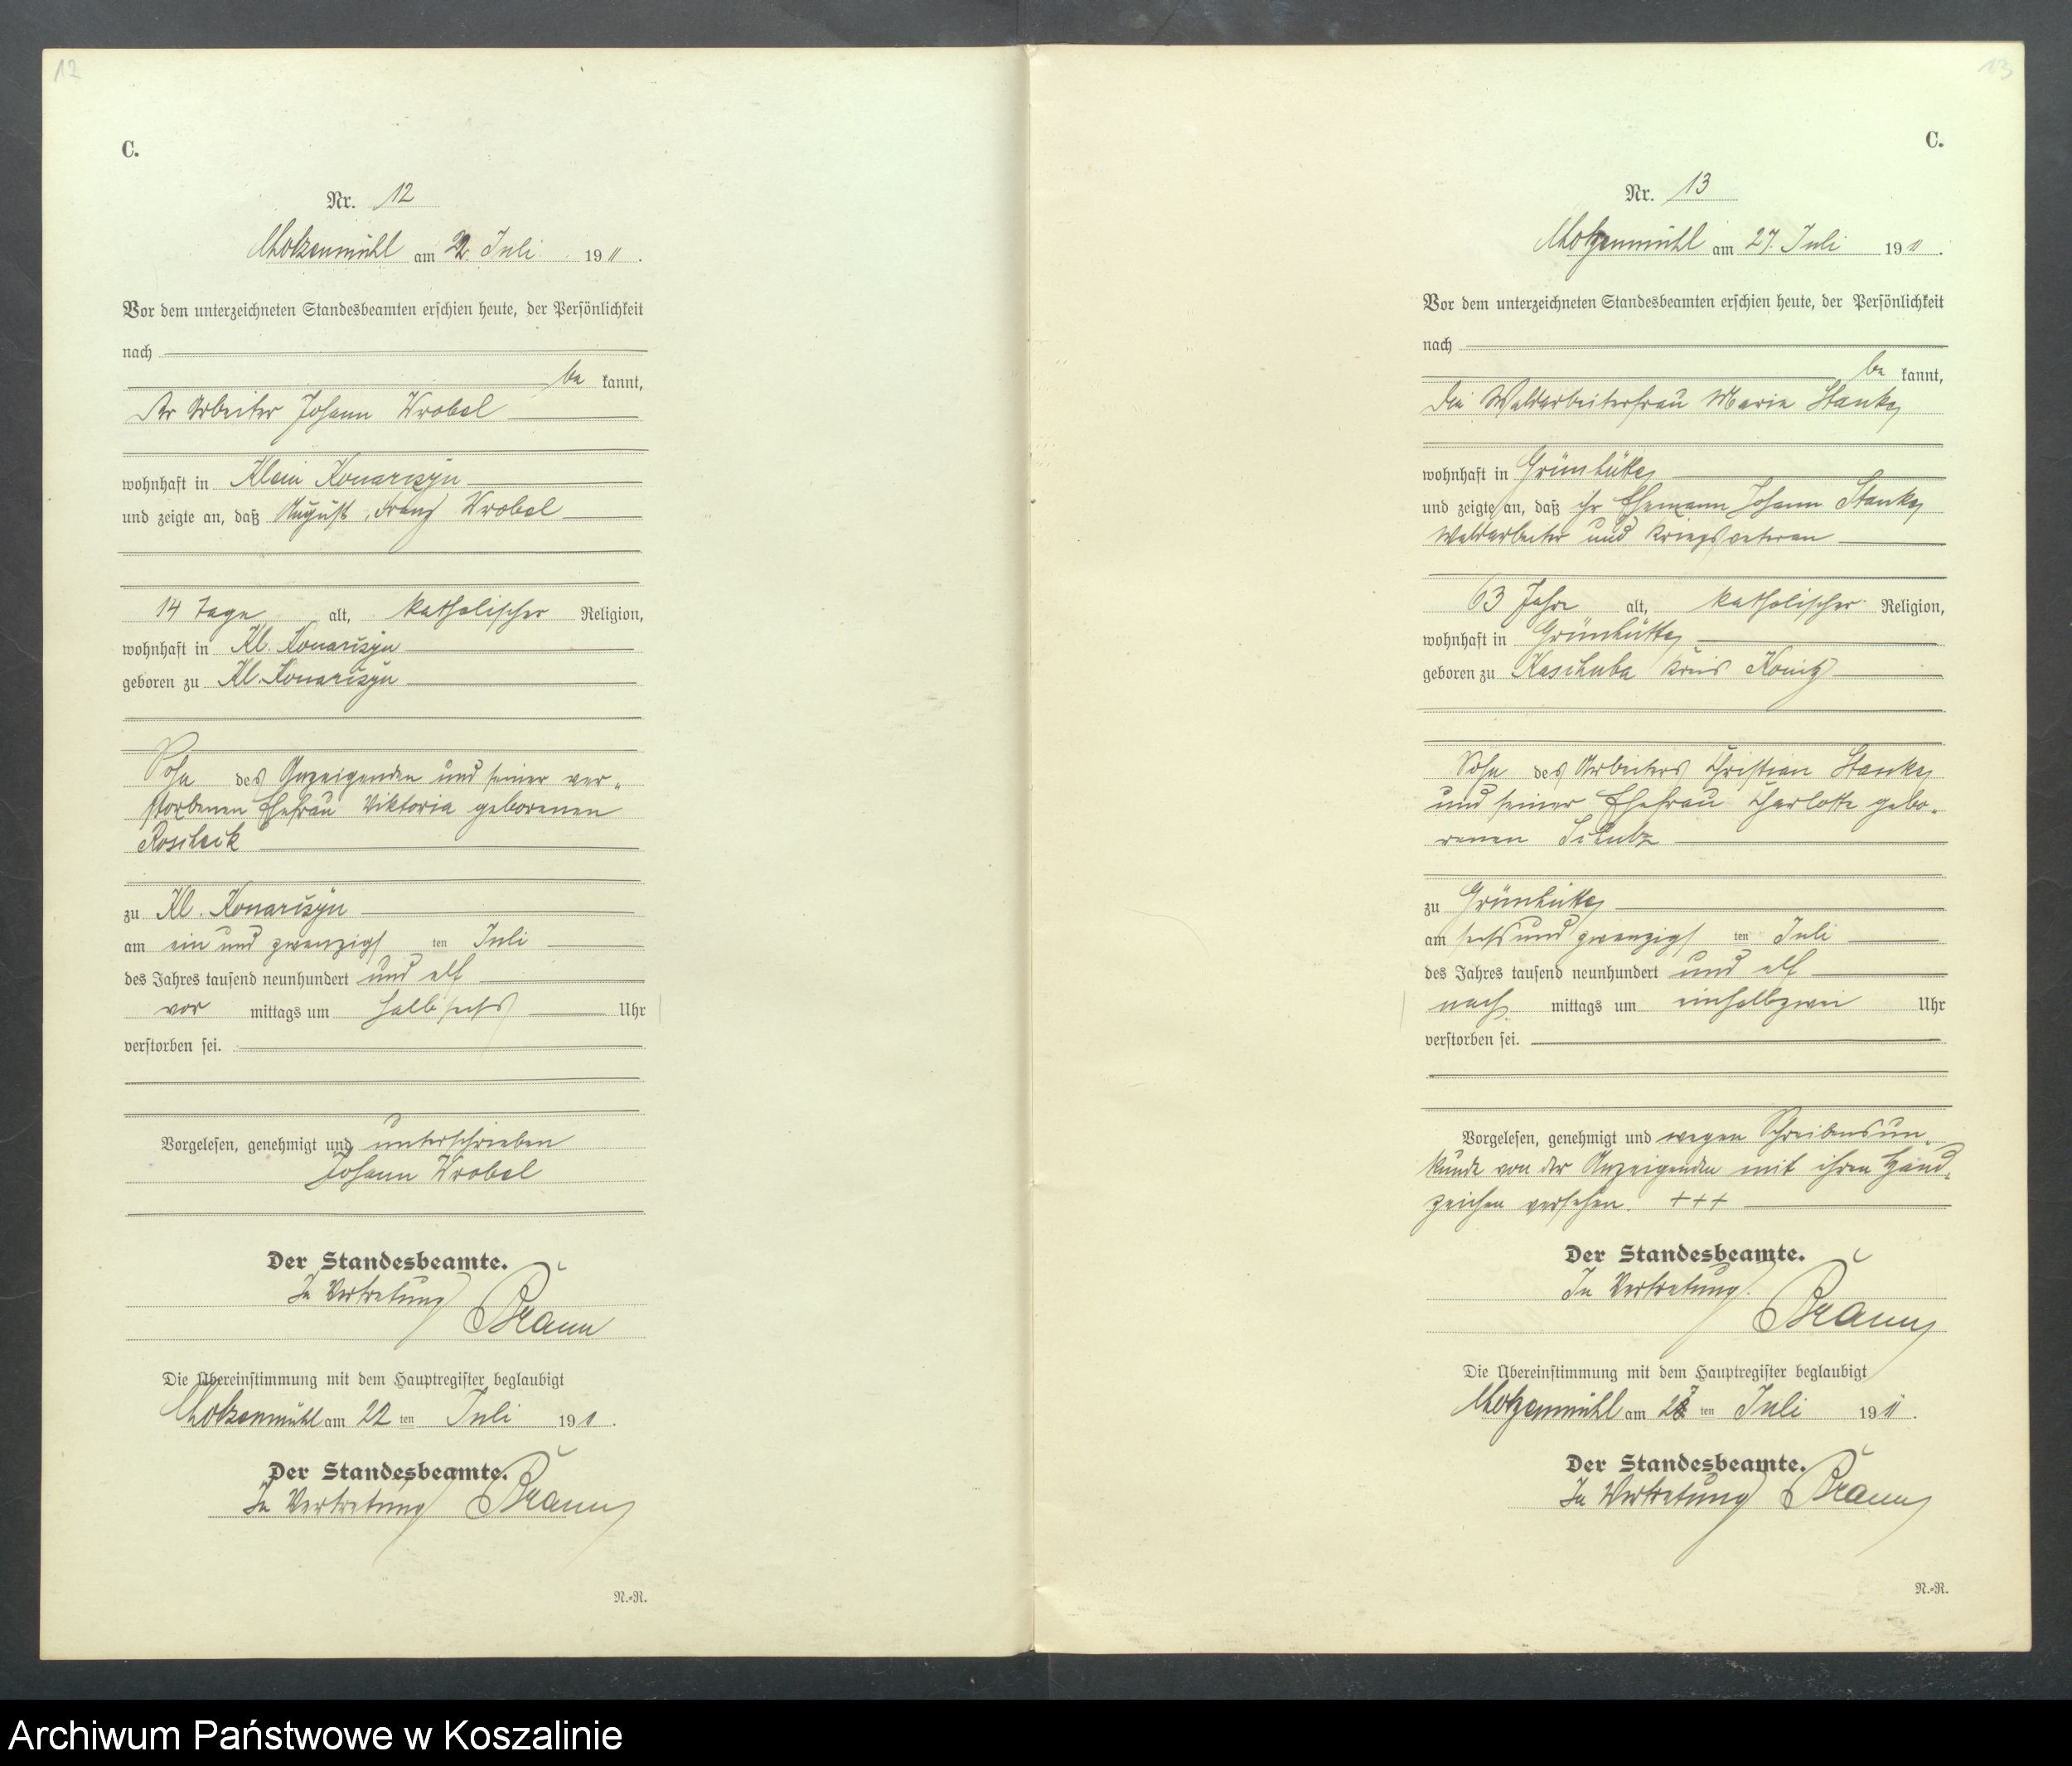 12
C.
Nr. 12
am 22. Juli 1911.
Vor dem unterzeichneten Standesbeamten erschien heute, der Persönlichkeit
nach
be kannt,
der Arbeiter Johann Wrobel
wohnhaft in Klein Konarczyn
und zeigte an, daß August, Franz Wrobel
14 Tage alt, katholischer Religion,
wohnhaft in Kl. Konarczyn
geboren zu Kl. Konarczyn
Sohn des Anzeigenden und seiner ver-
storbenen Ehefrau Viktoria geborenen
zu Kl. Konarczyn
am ein und zwanzigsten Juli
des Jahres tausend neunhundert und elf
vor mittags um halb sechs Uhr
verstorben sei.
Vorgelesen, genehmigt und unterschrieben
Johann Wrobel
Der Standesbeamte.
In Vertretung
Braun
Die Übereinstimmung mit dem Hauptregister beglaubigt
am 22 ten Juli 1911.
Der Standesbeamte.
In Vertretung Braun
N.-R.
13
C.
Nr. 13
am 27. Juli 1911.
Vor dem unterzeichneten Standesbeamten erschien heute, der Persönlichkeit
nach
be kannt,
die Waldarbeiterfrau Maria Stanke
wohnhaft in Grünhütte
und zeigte an, daß ihr Ehemann Johann Stanke
Waldarbeiter und Kriegsveteran
63 Jahre alt, katholischer Religion,
wohnhaft in Grünhütte
geboren zu Kaschuba Kreis Konitz
Sohn des Arbeiters Christian Stanke
und seiner Ehefrau Charlotte gebo-
renen Schulz
zu Grünhütte
am sechs und zwanzigsten Juli
des Jahres tausend neunhundert und elf
nach mittags um einhalbzwei Uhr
verstorben sei.
Vorgelesen, genehmigt und wegen Schreibensun-
kunde von der Anzeigenden mit ihren Hand-
zeichen versehen. +++
Der Standesbeamte.
In Vertretung.
Braun
Die Übereinstimmung mit dem Hauptregister beglaubigt
am 27 ten Juli 1911.
Der Standesbeamte.
In Vertretung Braun
N.-R.
Archiwum Państwowe w Koszalinie